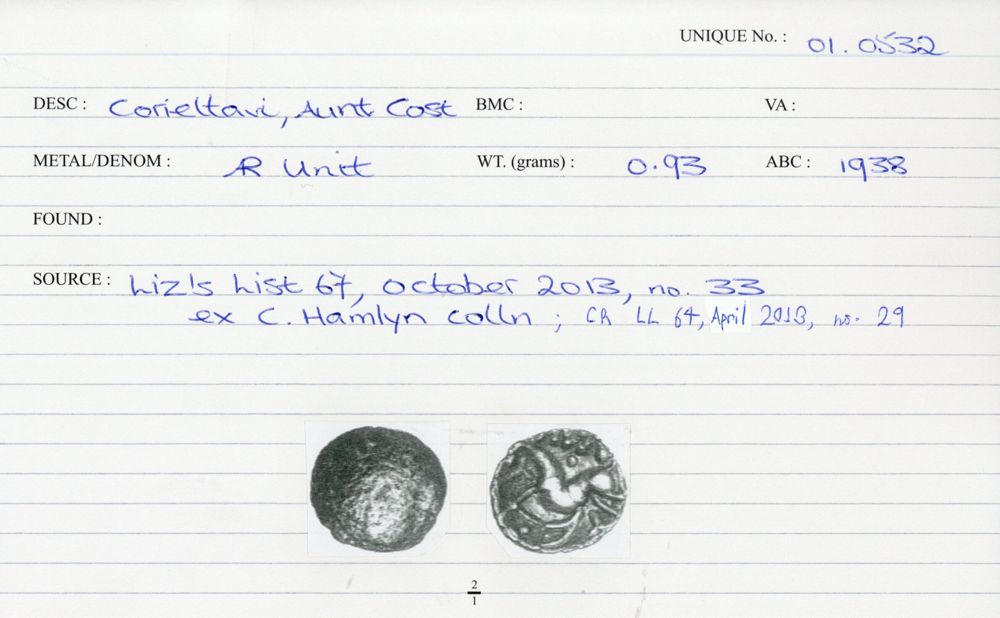 UNIQUE No. : 01.0532
DESC : Corieltavi, Aunt Cost BMC : VA :
METAL/DENOM : AR Unit WT. (grams) : 0.93 ABC : 1938
FOUND :
SOURCE : Liz's List 67, October 2013, no. 33
ex C. Hamlyn colln ; CR LL 64, April 2013, no. 29
2
1